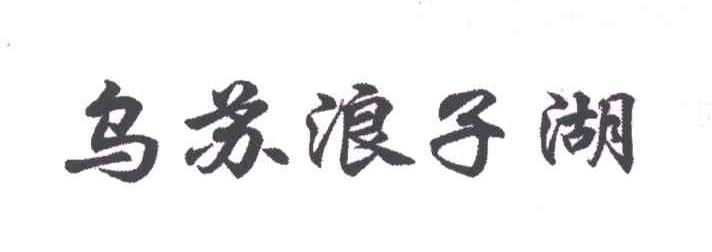 乌苏浪子湖